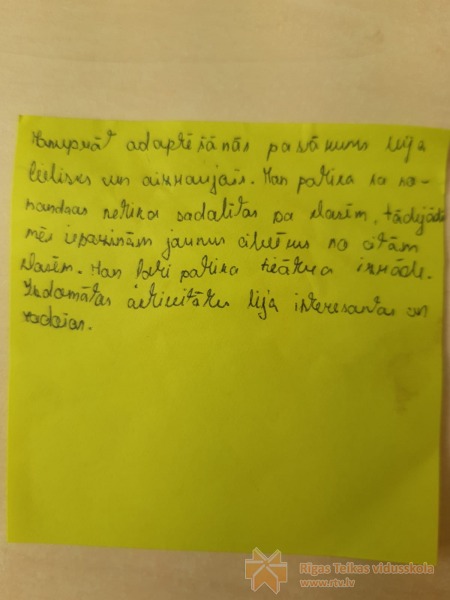 Manuprāt adaptēšanās pasākums bija
lielisks un aizraujošs. Man patika ka ko-
mandas netika sadalītas pa klasēm, tādejādi
mēs iepazinām jaunus cilvēkus no citām
klasēm. Man ļoti patika teātra izrāde.
Izdomātās aktivitātes bija interesantas un
radošas.
Rīgas Teikas vidusskola
www.rtv.lv